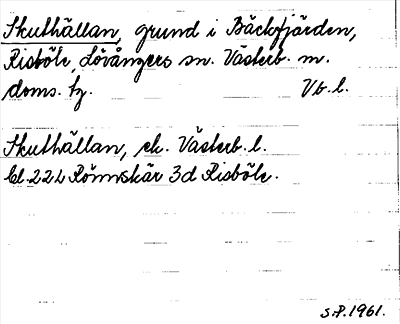 Skuthällan, grund i Bäckfjärden,
Risböle, Lövångers sn. Västerb. m.
doms. tg. Vb. l.
Skuthällan, ek. Västerb. l.
bl. 22 L Rönnskär 3d Risböle.
S.P. 1961.